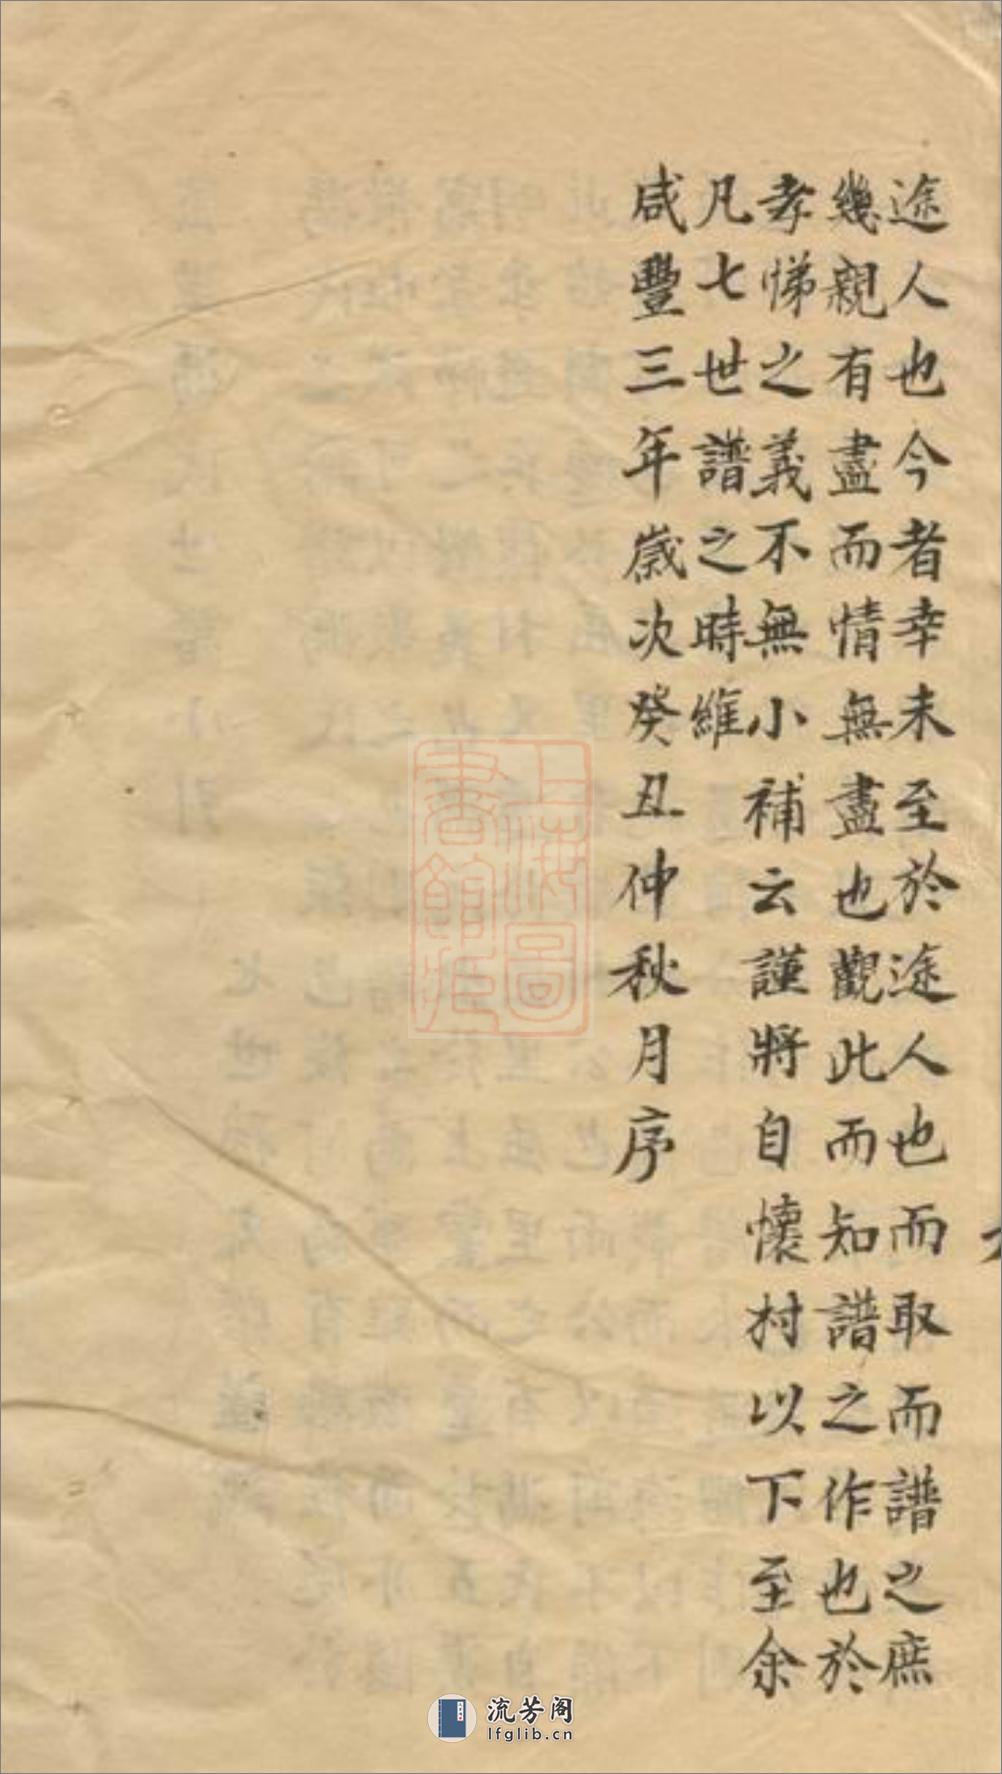 途人也今者幸未至於途人也而取而譜之庶
幾親有盡而情無盡也觀此而知譜之作也於
孝悌之義不無小補云謹將自懷村以下至余
凡七世譜之時維
咸豐三年歲次癸丑仲秋月序
上海圖書館藏
流芳阁
lfglib.cn